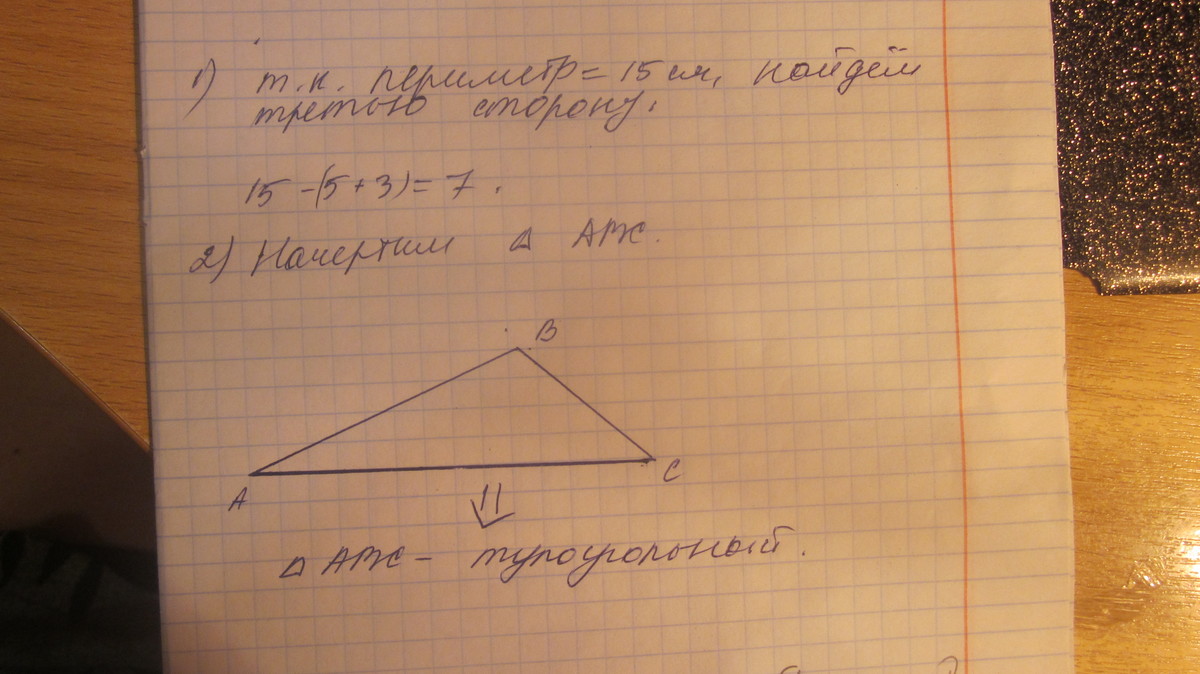 1) т.к. периметр = 15 см, найдём
третью сторону.
15 - (5 + 3) = 7 .
2) Начертим △ ABC.
B
A
C
⇓
△ ABC - тупоугольный.